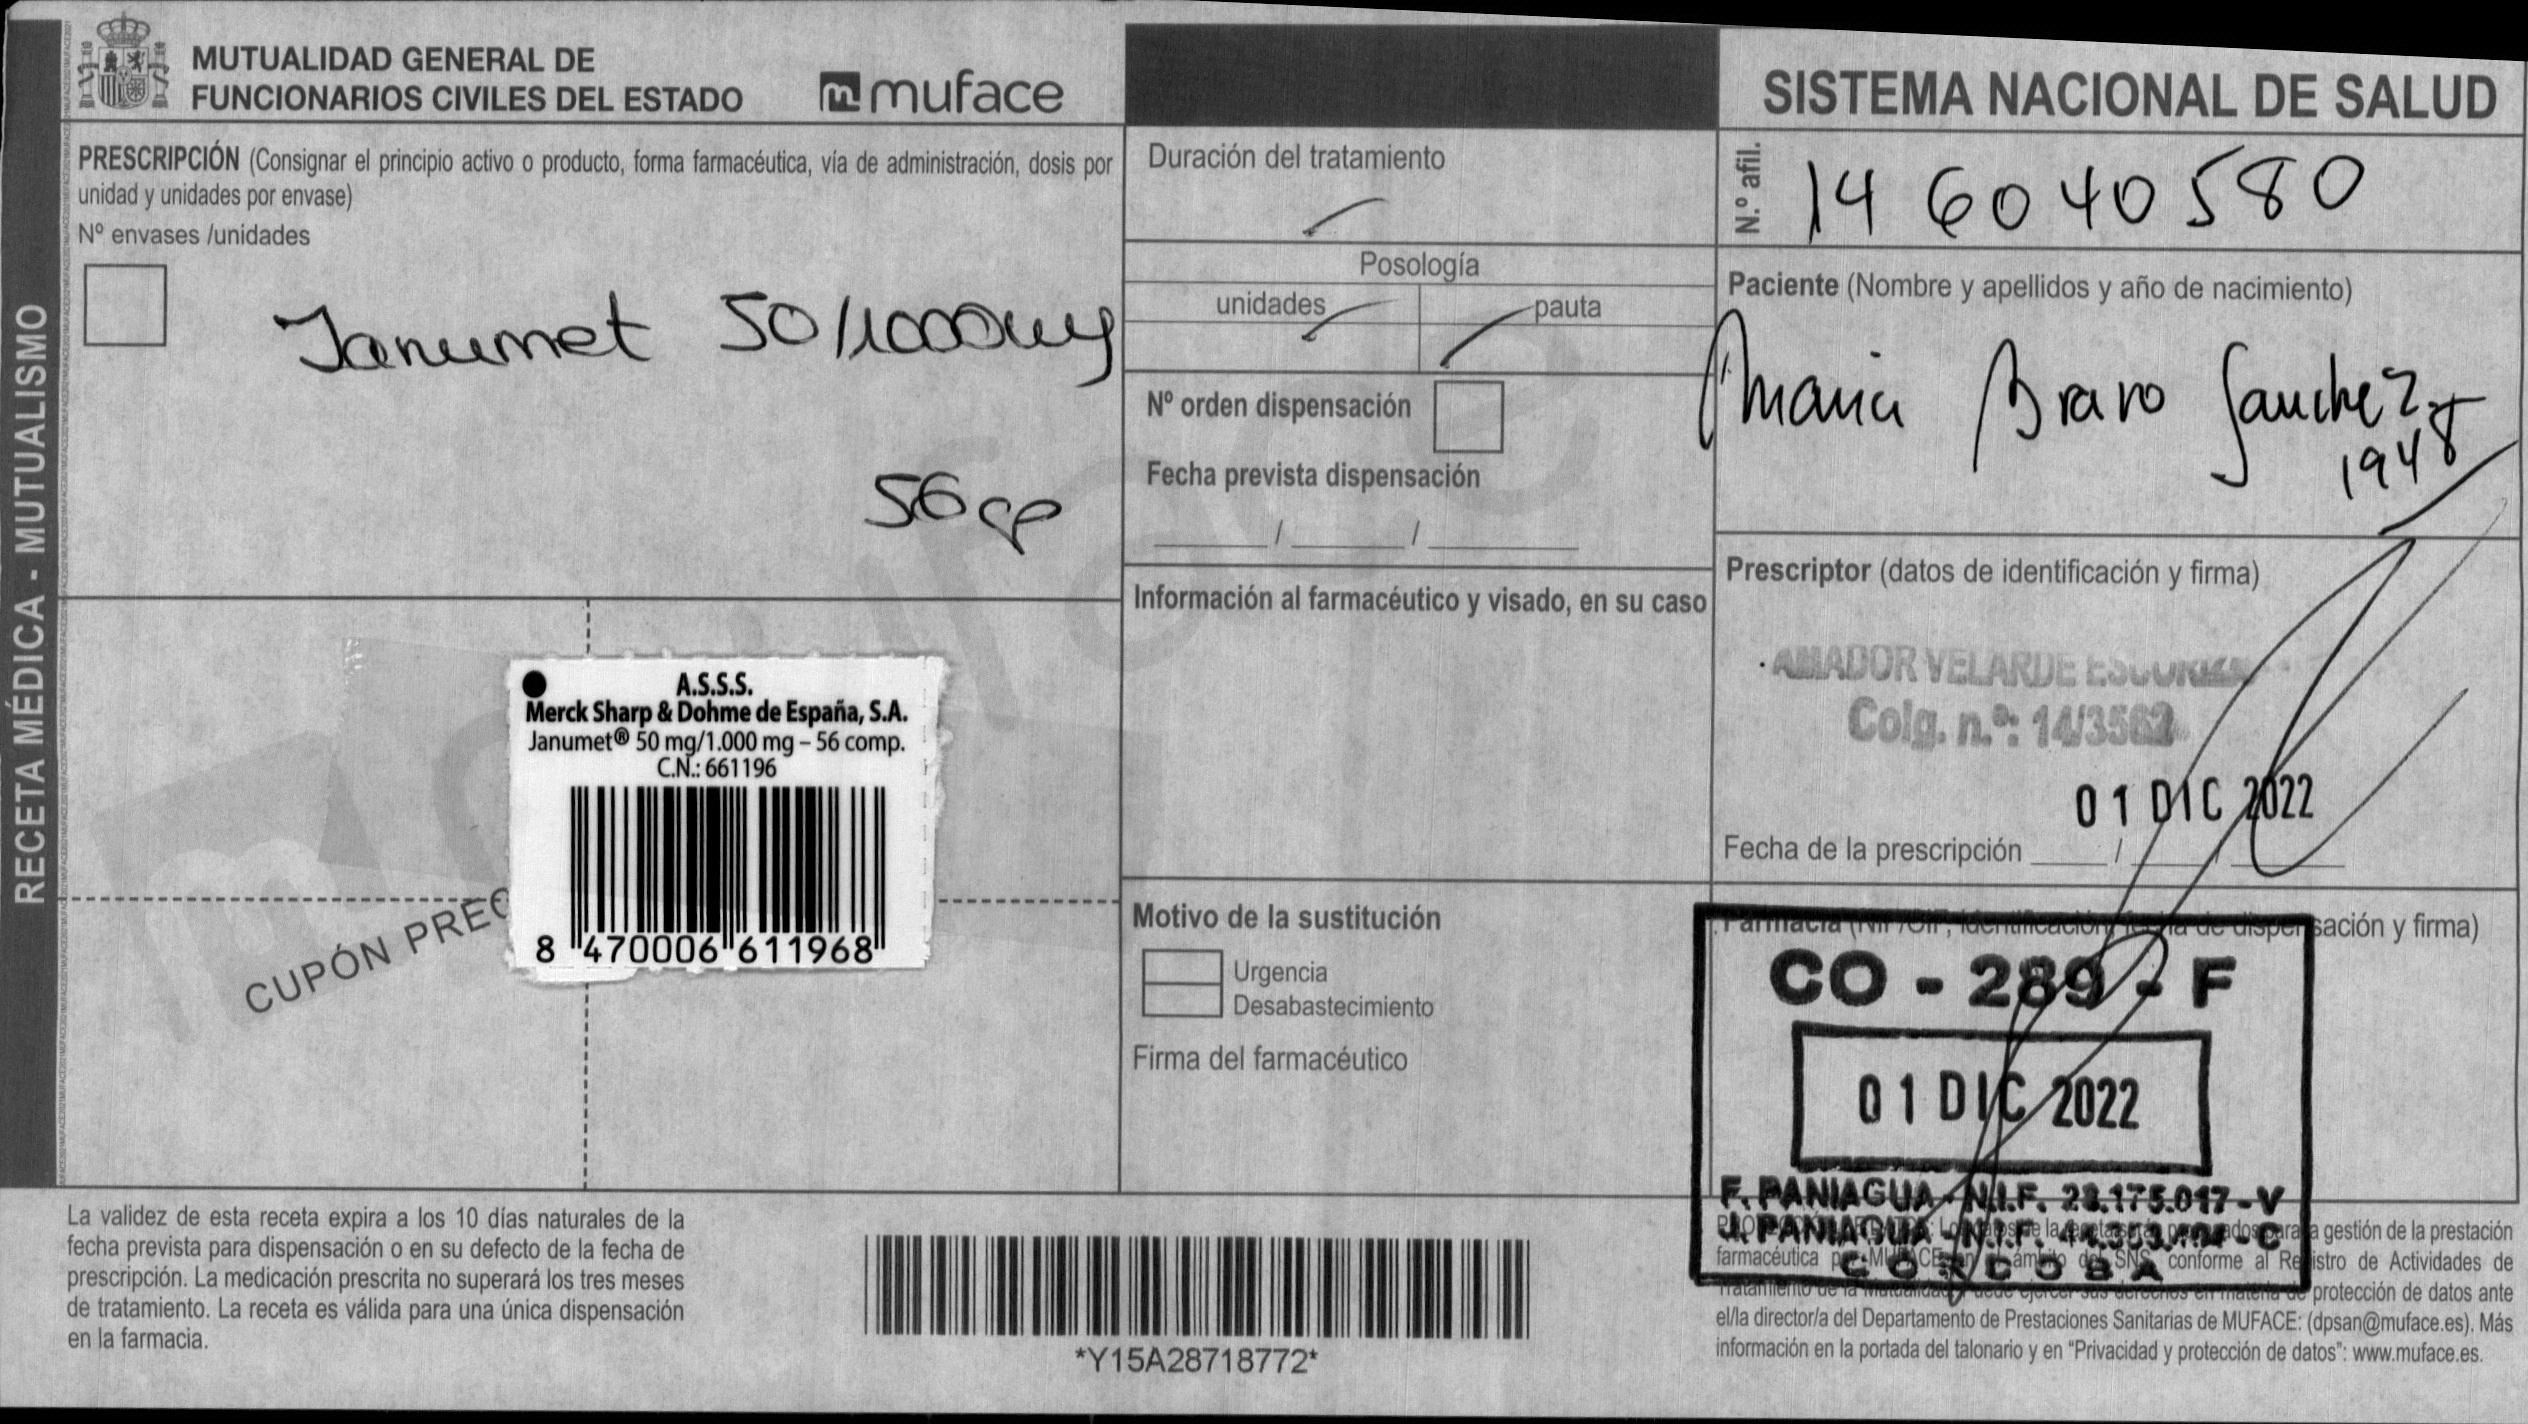 MUTUALIDAD GENERAL DE
FUNCIONARIOS CIVILES DEL ESTADO
muface
SISTEMA NACIONAL DE SALUD
RECETA MÉDICA - MUTUALISMO
PRESCRIPCIÓN (Consignar el principio activo o producto, forma farmacéutica, vía de administración, dosis por
unidad y unidades por envase)
Nº envases /unidades
Janumet 50/1000mg
56 cp
Duración del tratamiento
Posología
unidades
pauta
Nº orden dispensación
Fecha prevista dispensación
/ /
Información al farmacéutico y visado, en su caso
N.º afil.
14 6040580
Paciente (Nombre y apellidos y año de nacimiento)
Maria Bravo Sanchez
1948
Prescriptor (datos de identificación y firma)
AMADOR VELARDE
Colg. n.º: 14/3562
01 DIC 2022
Fecha de la prescripción / /
CUPÓN PREC
A.S.S.S.
Merck Sharp & Dohme de España, S.A.
Janumet® 50 mg/1.000 mg – 56 comp.
C.N.: 661196
8 470006 611968
Motivo de la sustitución
Urgencia
Desabastecimiento
Firma del farmacéutico
Farmacia (NIF/CIF, identificación, fecha de dispensación y firma)
CO - 289 - F
01 DIC 2022
F. PANIAGUA - N.I.F. 28.175.017 - V
J. PANIAGUA - N.I.F.
CORDOBA
La validez de esta receta expira a los 10 días naturales de la
fecha prevista para dispensación o en su defecto de la fecha de
prescripción. La medicación prescrita no superará los tres meses
de tratamiento. La receta es válida para una única dispensación
en la farmacia.
*Y15A28718772*
gestión de la prestación
farmacéutica por MUFACE en el ámbito del SNS, conforme al Registro de Actividades de
Tratamiento de la Mutualidad. Puede ejercer sus derechos en materia de protección de datos ante
el/la director/a del Departamento de Prestaciones Sanitarias de MUFACE: (dpsan@muface.es). Más
información en la portada del talonario y en “Privacidad y protección de datos”: www.muface.es.